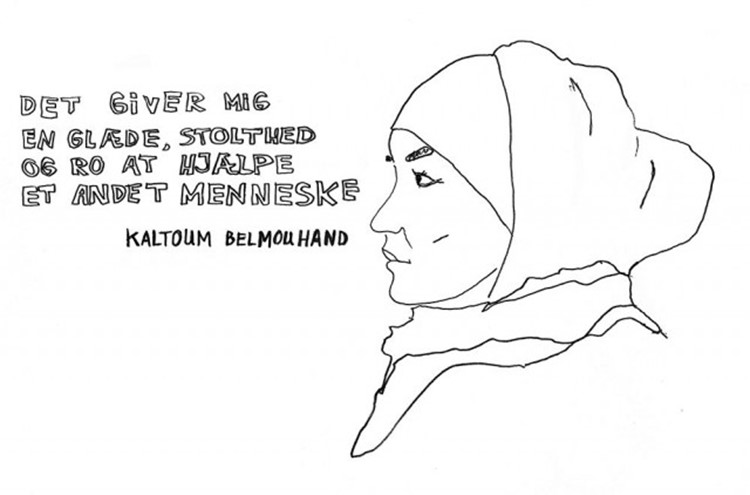 DET GiVER MIG
EN GLÆDE, STOLTHED
OG RO AT HJÆLPE
ET ANDET MENNESKE
KALTOUM BELMOUHAND